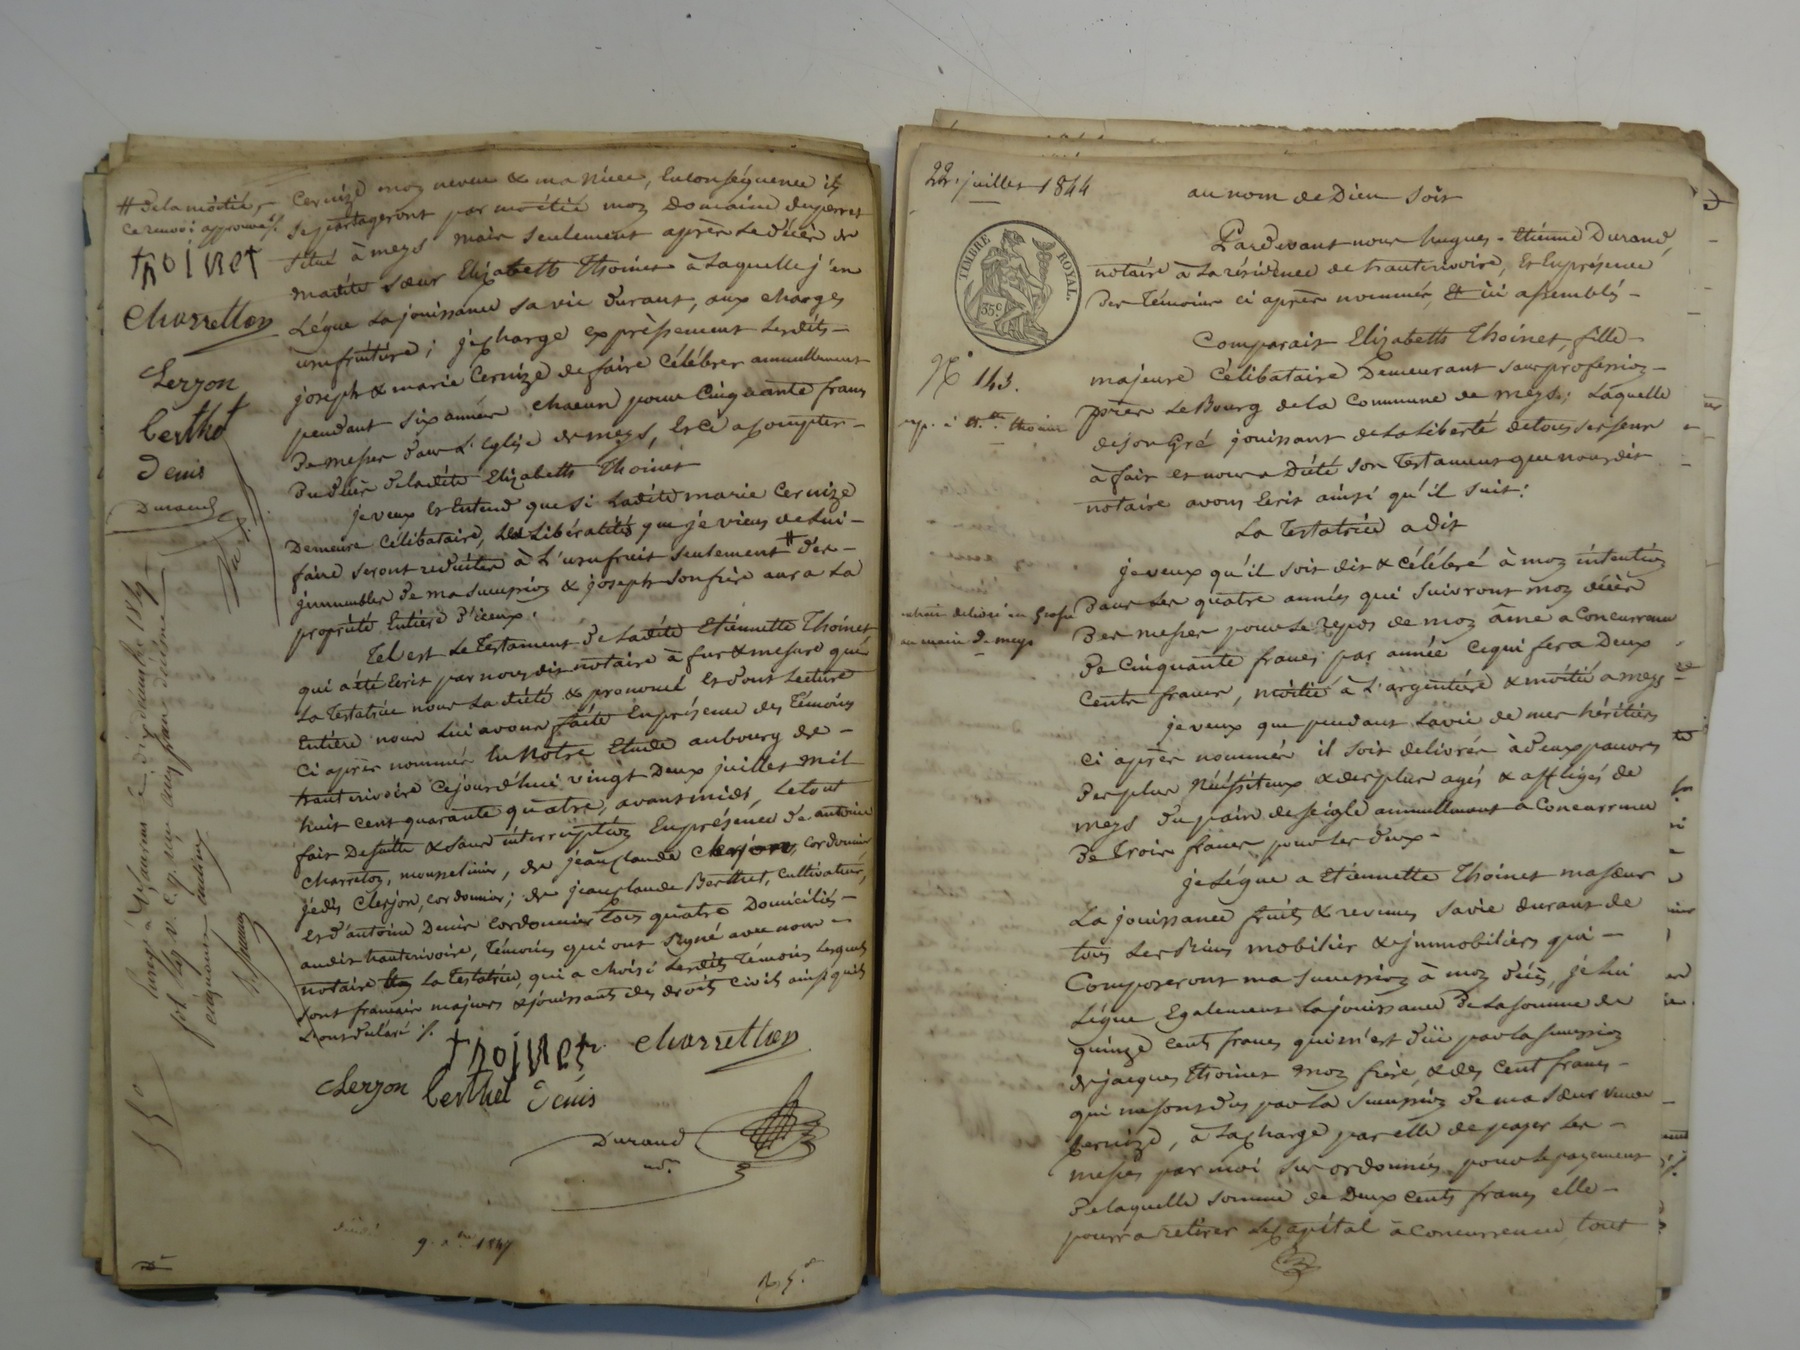 # de la moitié,
ce renvoi approuvé /.
thoinet
Charretton
Clerjon
berthet
Denis
Durand
cernize mon neveu & ma Niece, En conséquence ils
se partageront par moitié mon Domaine du perret
situé à meys mais seulement après le décès de
madite sœur Elizabeth Thoinet à laquelle j'en
Légue la jouissance sa vie durant, aux charges
usufruitière; je charge expréssement lesdits
joseph & marie Cernize de faire célébrer annuellement
pendant six années chacun pour Cinquante francs
De messes dans l'Eglise de meys, Et ce a compter
Du décès de ladite Elizabeth Thoinet
je veux Et Entend que si ladite marie Cernize
Demeure célibataire, les Libéralités que je viens de lui
faire seront reduites à l'usufruit seulement # des
jmmeubles de ma succession & joseph son frère aura la
propriété Entière d'iceux.
Tel est le Testament de ladite Etiennette Thoinet
qui a été Ecrit par nous dit notaire à fur & mesure que
la Testatrice nous l'a dicté & prononcé Et dont Lecture
Entière nous lui avons faite En présence des Témoins
ci après nommés En Notre Etude au bourg de
hauterivoire Cejourd'hui vingt Deux juillet mil
huit cent quarante quatre, avant midi, Le tout
fait De suite & sans interruption En présence de antoine
Charreton, mousselinier, de jean Claude Clerjon, cordonnier
Clerjon, cordonnier; de jean Claude Berthet, Cultivateur,
Et d'antoine Denis cordonnier tous quatre Domiciliés
audit hauterivoire, Témoins qui ont Signé avec nous
notaire & la Testatrice, qui a choisi lesdits Témoins lesquels
sont français majeurs & jouissants des droits civils ainsi qu'ils
L'ont déclaré /.
thoinet Charretton
Clerjon berthet Denis
Durand
nre
9 1847
22. juillet 1844
TIMBRE ROYAL.
35 c
No 143.
au nom de Dieu soit
Pardevant nous hugues-Etienne Durand,
notaire à la résidence de hauterivoire, Et En présence
Des Témoins ci après nommés, Et ici assemblés
Comparait Elizabeth Thoinet, fille
majeure célibataire Demeurant sans profession
près le Bourg de la Commune de meys; Laquelle
de son Gré jouissant de la Liberté de tous ses sens
à fait et nous a Dicté son Testament que nous dit
notaire avons Ecrit ainsi qu'il suit:
La Testatrice a dit
je veux qu'il soit dit & célébré à mon intention
Dans les quatre années qui suivront mon décès
Des messes pour le repos de mon âme a Concurrence
De Cinquante francs par année ce qui fera Deux
Cents francs, moitié à l'argentière & moitié a meys
extrait délivré en
au maire de meys
je veux que pendant la vie de mes héritiers
ci après nommés il soit delivrée à deux pauvres
Des plus Nécessiteux & des plus agés & affligés de
meys du pain de seigle annuellement a Concurrence
De Trois francs pour les deux
je Légue a Etiennette Thoinet ma sœur
La jouissance fruits & revenus sa vie durant de
tous les Biens mobiliers & jmmobiliers qui
Composeront ma succession à mon décès, je lui
Légue Egalement la jouissance De la somme de
quinze cents francs qui m'est düe par la succession
de jacques Thoinet mon frère, & des cent francs
qui me sont dus par la succession de ma sœur veuve
Cernize, à la charge par elle de payer les
messes par moi sus ordonnées, pour le payement
De laquelle somme de Deux cents francs elle
pourra retirer le Capital à Concurrence, tout